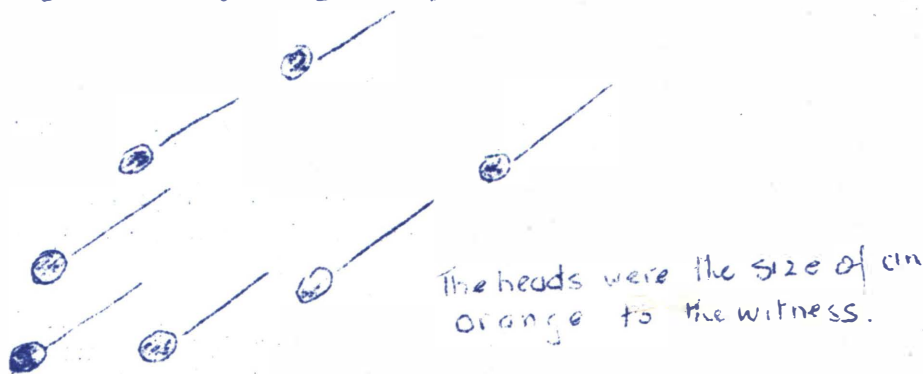 The heads were the size of an
orange to the witness.